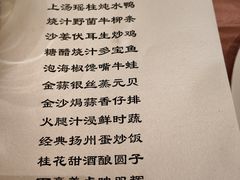 上汤瑶柱炖水鸭
烧汁野菌牛柳条
沙姜伏耳生炒鸡
糖醋烧汁多宝鱼
泡海椒馋嘴牛蛙
金蒜银丝蒸元贝
金沙焗蒜香仔排
火腿汁浸鲜时蔬
经典扬州蛋炒饭
桂花甜酒酿圆子